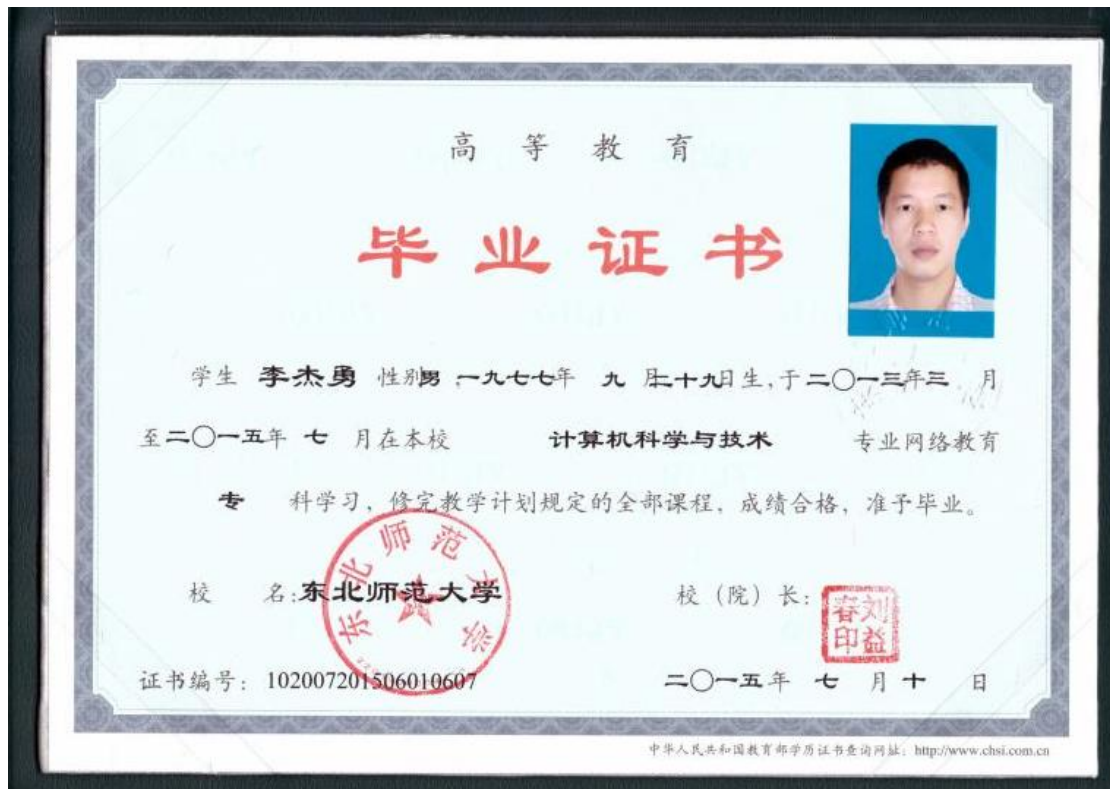 高等教育
毕业证书
学生 李杰勇 性别男，一九七七年 九 月二十九日生，于二〇一三年三 月
至二〇一五年 七 月在本校 计算机科学与技术 专业网络教育
专 科学习，修完教学计划规定的全部课程，成绩合格，准予毕业。
校 名:东北师范大学 校（院）长:
东北师范大学
刘益春印
证书编号：102007201506010607 二〇一五年 七 月十 日
中华人民共和国教育部学历证书查询网址：http://www.chsi.com.cn